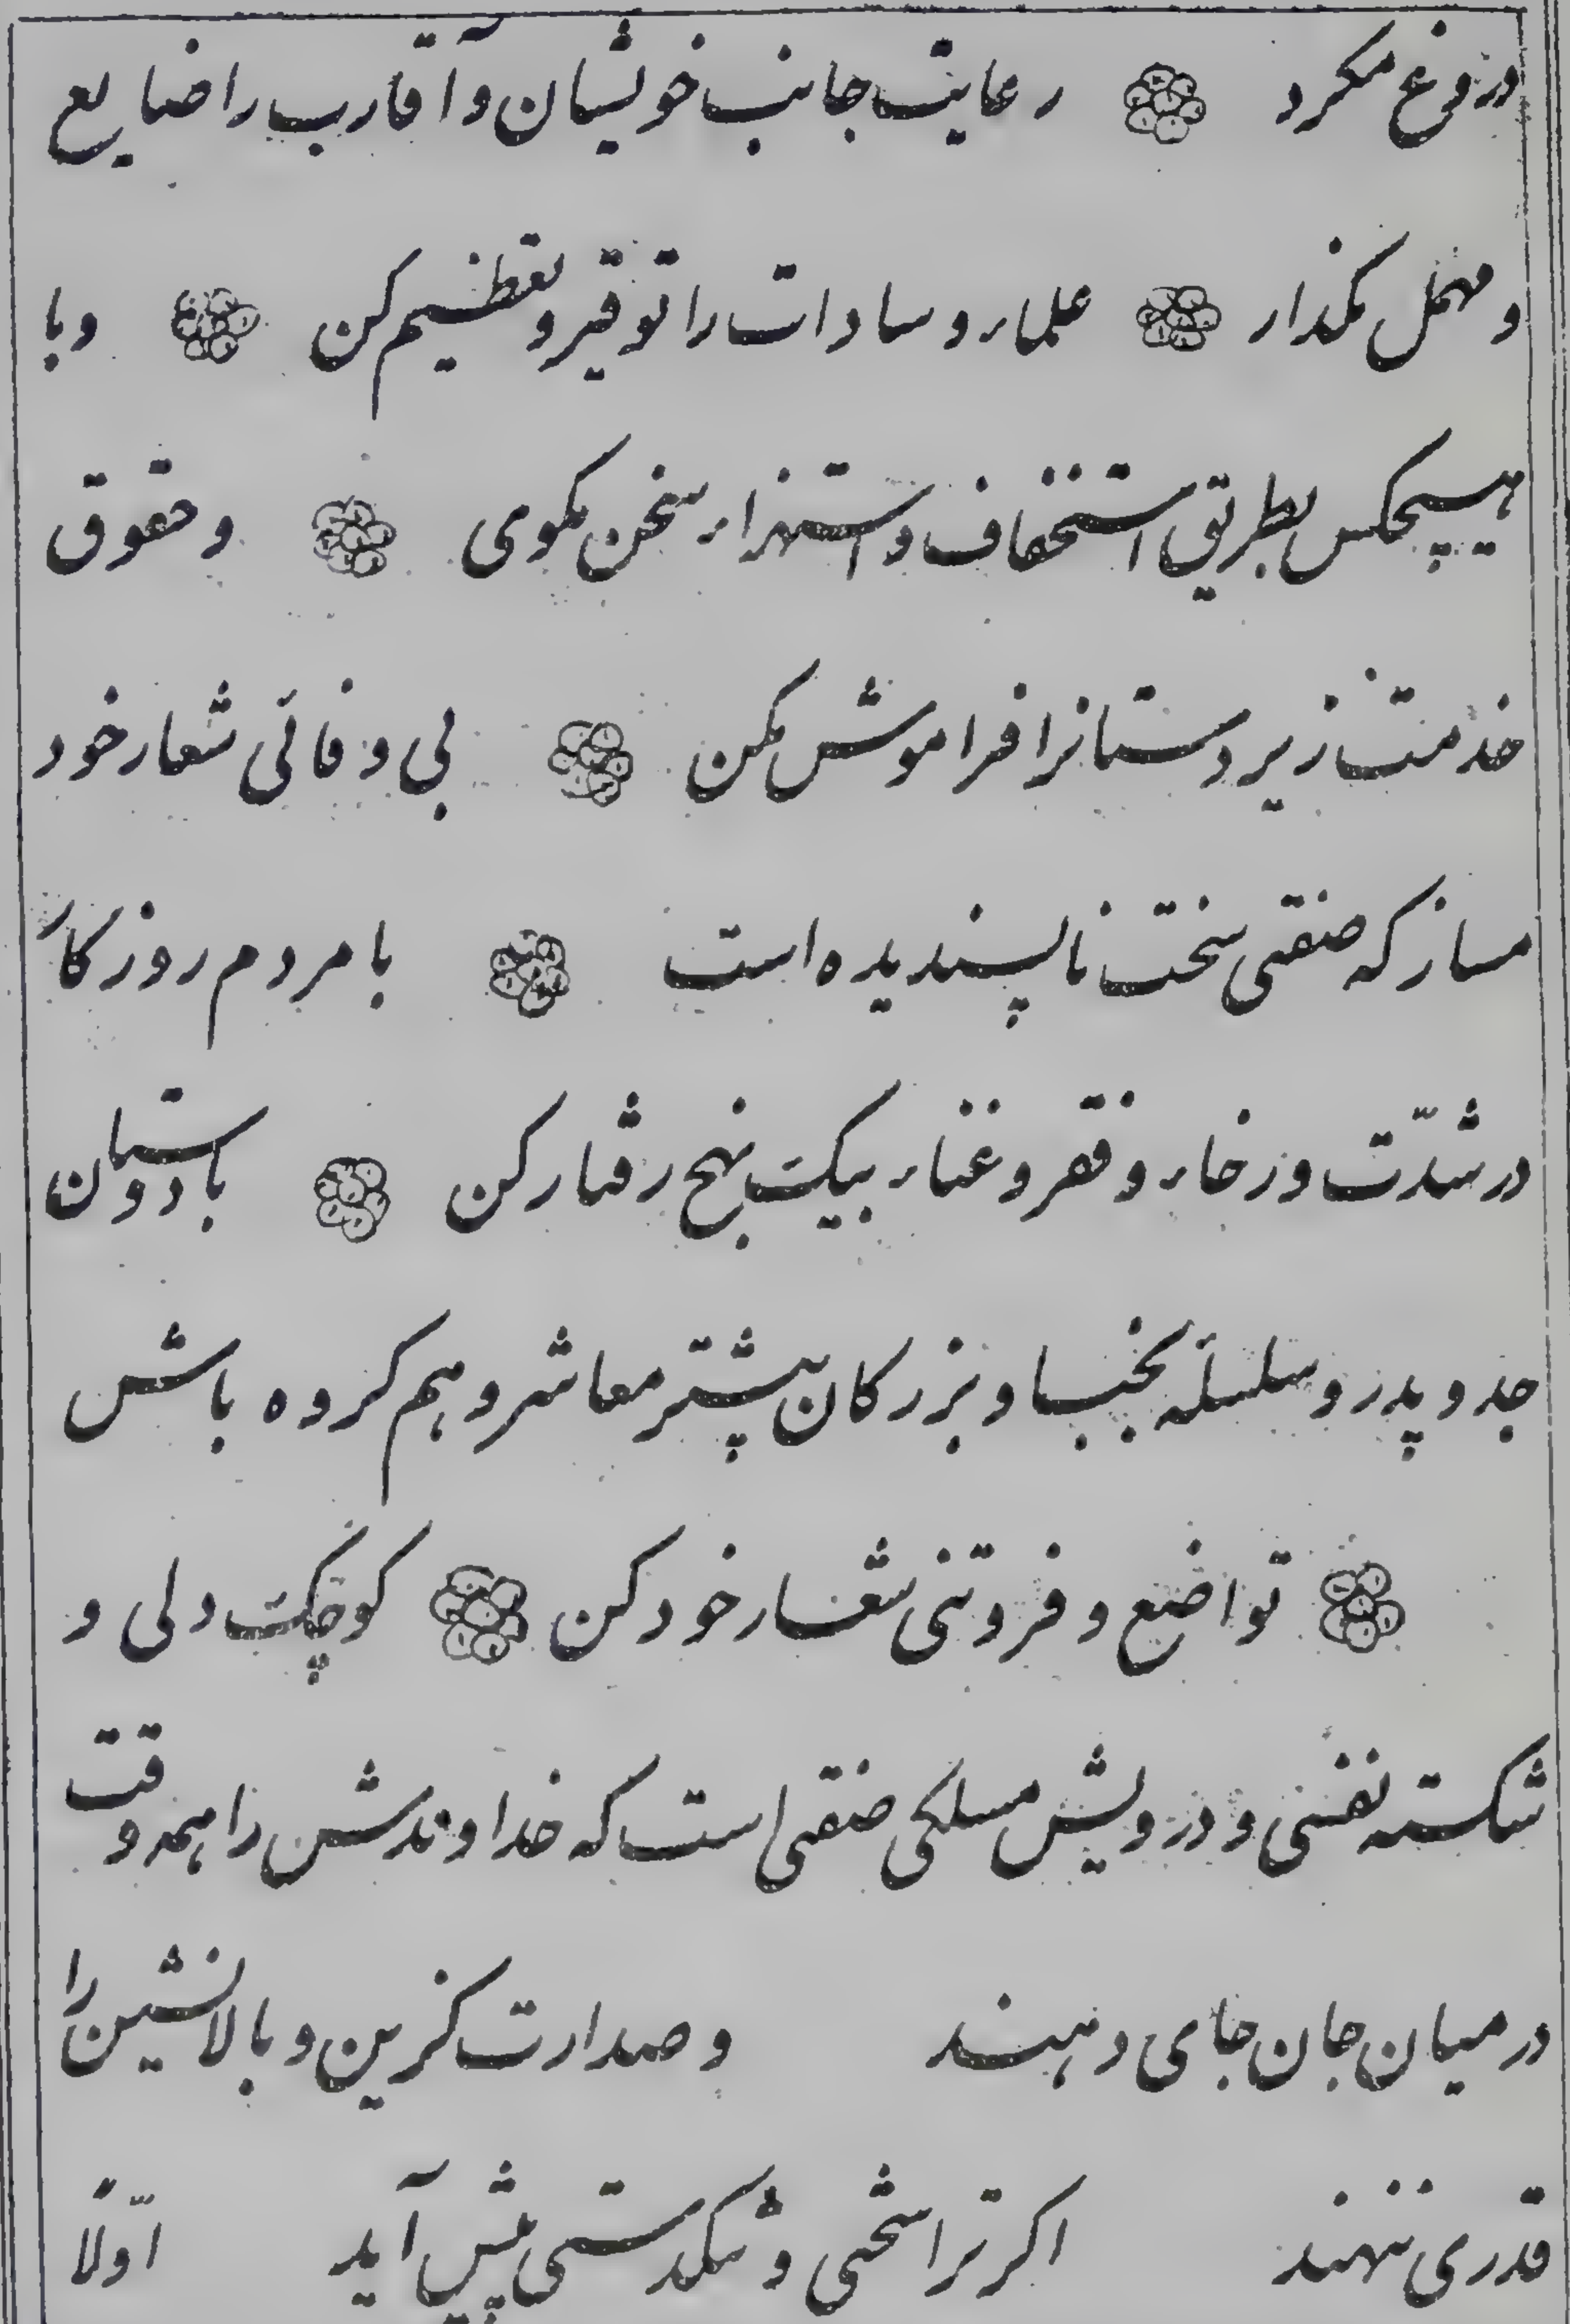 دروغ مگرد رعایت جانب خویشان و آقارب را ضایع
و مهمل مگذار علماء و سادات را توقیر و تعظیم کن وبا
هیچکس بطریق استخفاف و استهزاء سخن مگوی و حقوق
خدمت زیردستانرا فراموش مکن بی وفائی شعار خود
مساز که صفتی سخت ناپسندیده است با مردم روزکار
در شدّت و رخاء و فقر و غناء بیک نهج رفتار کن با دوستان
جد و پدر و سلسلهٔ نجبا و بزرکان بیشتر معاشر و هم کروه باش
تواضع و فروتنی شعار خود کن کوچک دلی و
شکسته نفسی و درویش مسلکی صفتی است که خداوندش را همه وقت
در میان جان جای دهند و صدارت کزین و بالانشین را
قدری ننهند اکر ترا سختی و تنکدستی پیش آید اوّلاً